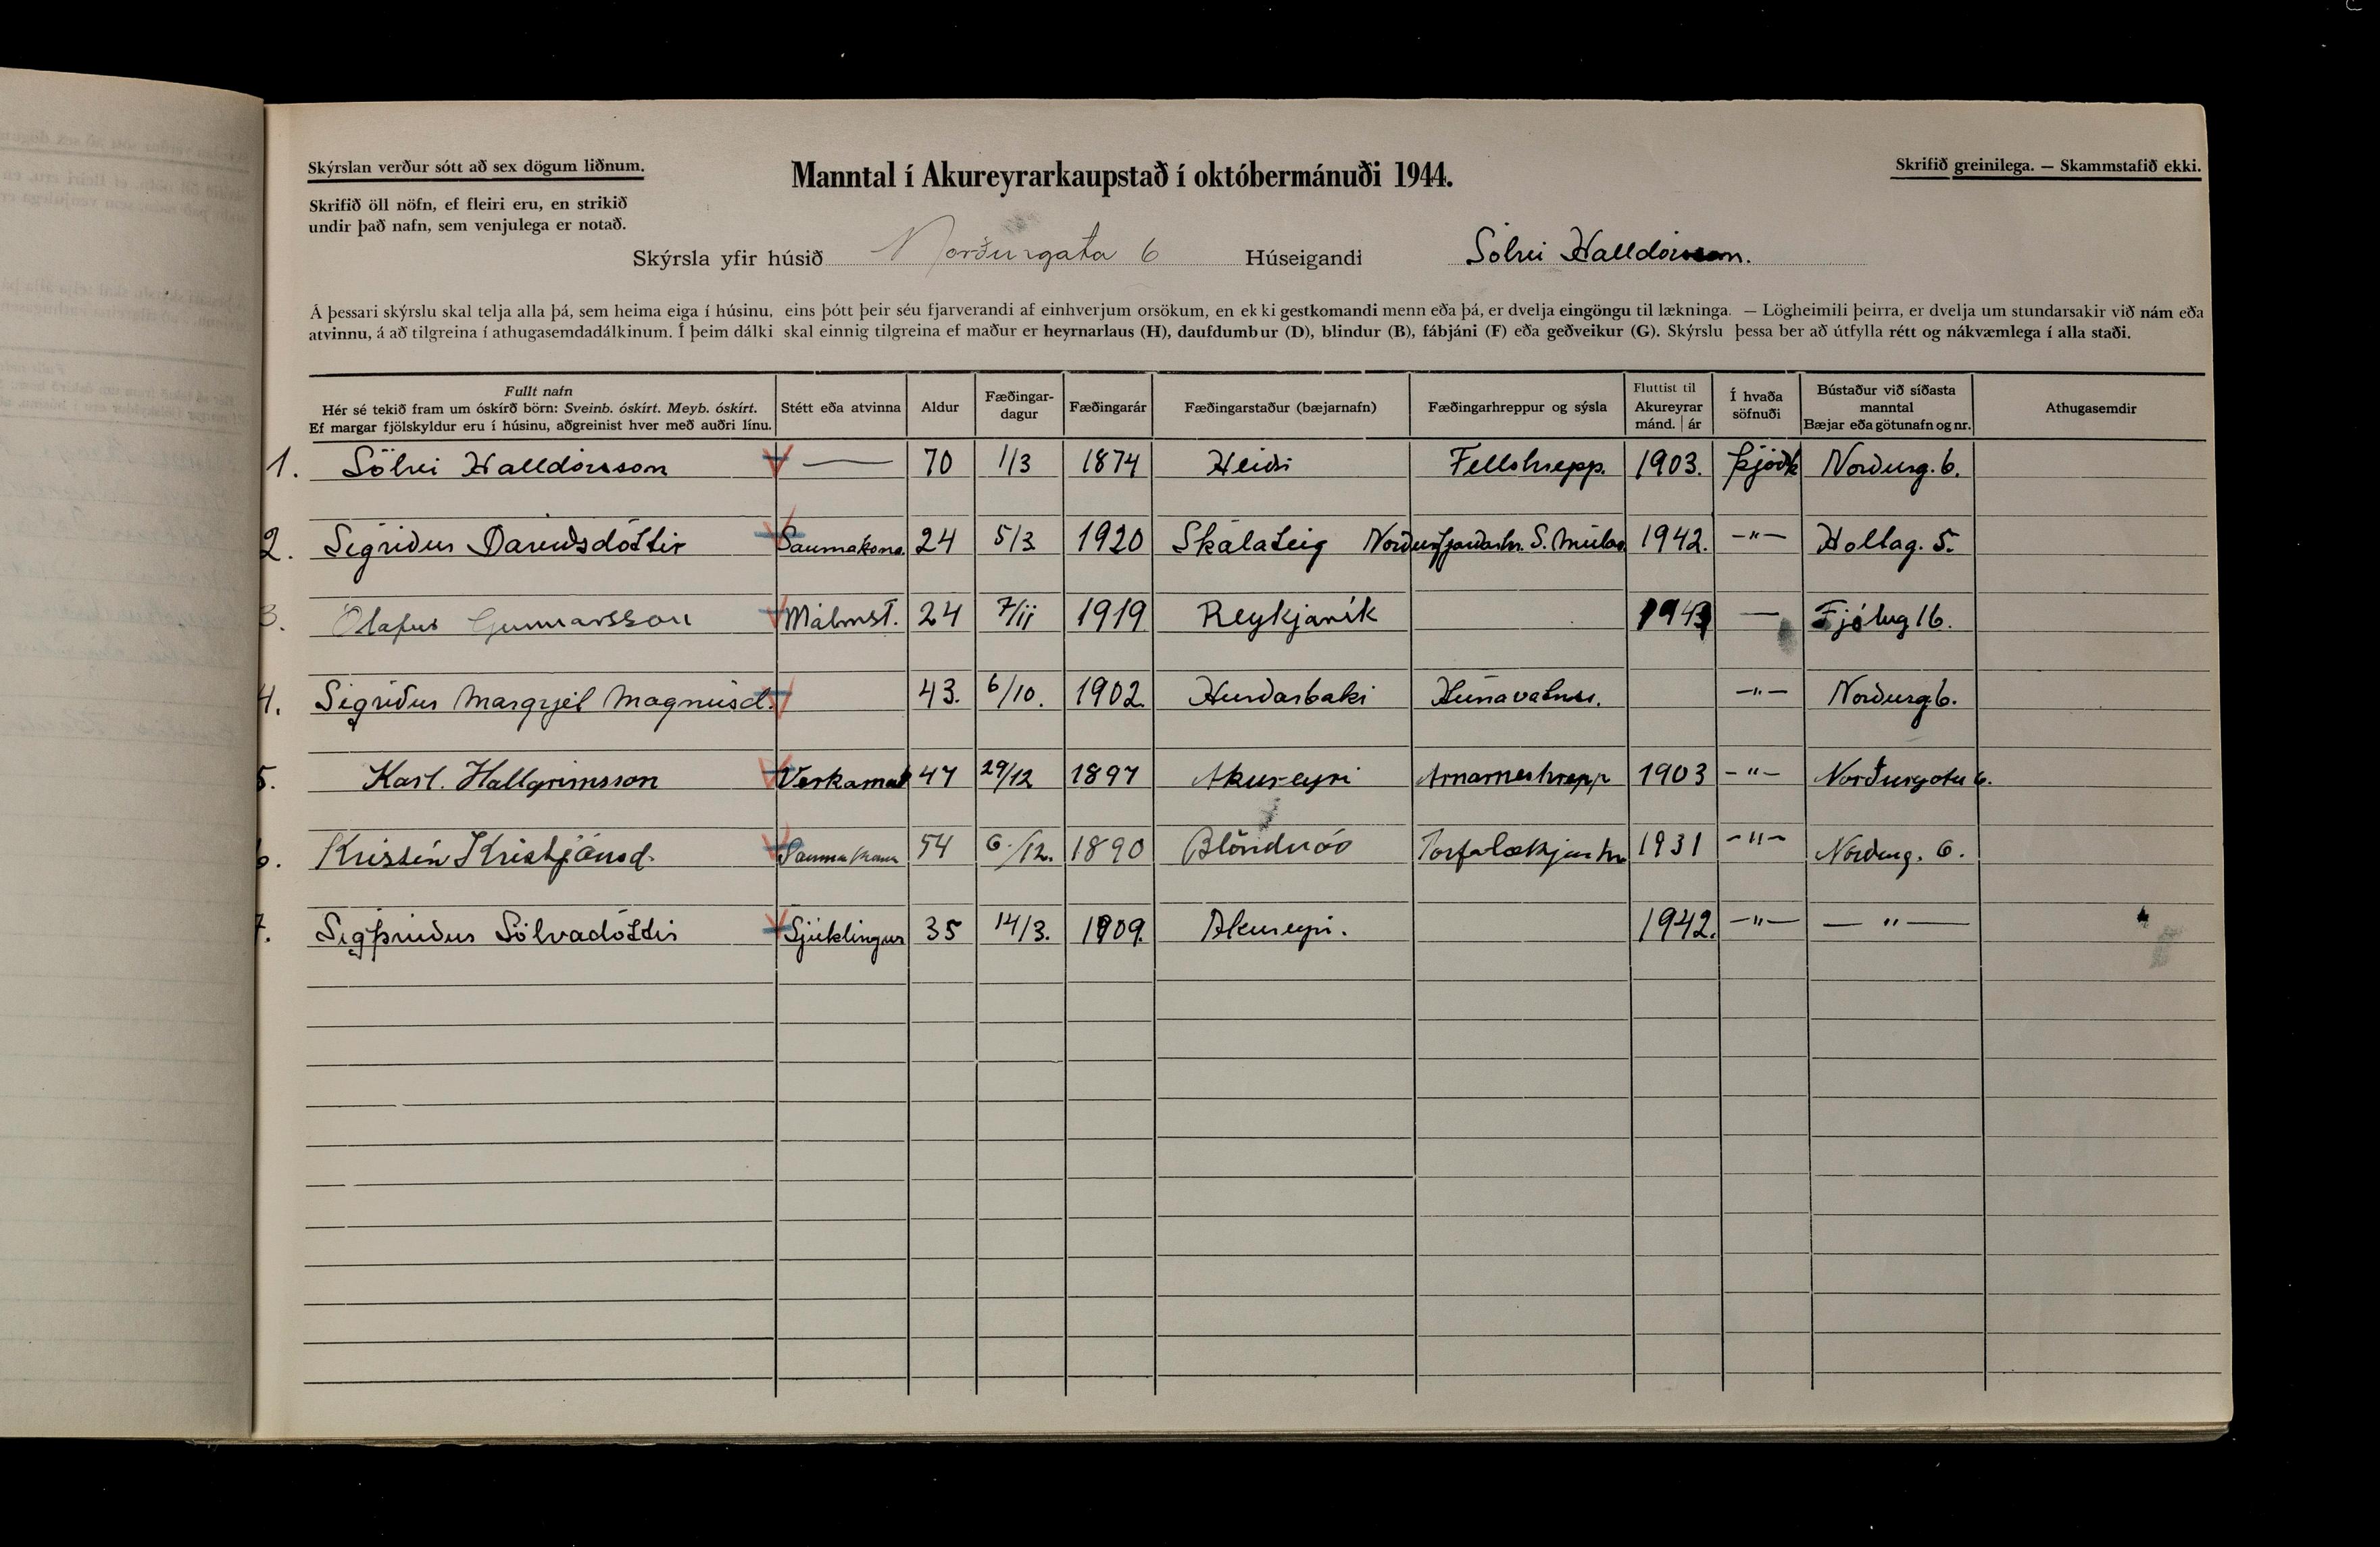 Skýrslan verður sótt að sex dögum liðnum.
Manntal í Akureyrarkaupstað í októbermánuði 1944.
Skrifið greinilega. — Skammstafið ekki.
Skrifið öll nöfn, ef fleiri eru, en strikið
undir það nafn, sem venjulega er notað.
Skýrsla yfir húsið Norðurgata 6 Húseigandi Sölvi Halldórsson.
Á þessari skýrslu skal telja alla þá, sem heima eiga í húsinu, eins þótt þeir séu fjarverandi af einhverjum orsökum, en ekki gestkomandi menn eða þá, er dvelja eingöngu til lækninga. — Lögheimili þeirra, er dvelja um stundarsakir við nám eða
atvinnu, á að tilgreina í athugasemdadálkinum. Í þeim dálki skal einnig tilgreina ef maður er heyrnarlaus (H), daufdumbur (D), blindur (B), fábjáni (F) eða geðveikur (G). Skýrslu þessa ber að útfylla rétt og nákvæmlega í alla staði.
Fullt nafn
Hér sé tekið fram um óskírð börn: Sveinb. óskírt. Meyb. óskírt.
Ef margar fjölskyldur eru í húsinu, aðgreinist hver með auðri línu.
Stétt eða atvinna
Aldur
Fæðingar-
dagur
Fæðingarár
Fæðingarstaður (bæjarnafn)
Fæðingarhreppur og sýsla
Fluttist til
Akureyrar
mánd. | ár
Í hvaða
söfnuði
Bústaður við síðasta
manntal
Bæjar eða götunafn og nr.
Athugasemdir
1. Sölvi Halldórsson — 70 1/3 1874 Heiði Fellshrepp. 1903. Þjóðk Norðurg. 6.
2. Sigríður Davíðsdóttir Saumakona 24 5/3 1920 Skálateig Norðurfjarðarhr. S. Múlas 1942. -"- Holtag. 5.
3. Ólafur Gunnarsson Málmst. 24 7/11 1919 Reykjavík 1943 — Fjólug 16.
4. Sigríður Margrjet Magnúsd. 43. 6/10. 1902. Hurðarbaki Húnavatnss. -"- Norðurg. 6.
5. Karl. Hallgrímsson Verkamað 47 29/12 1897 Akureyri Arnarneshrepp 1903 -"- Norðurgötu 6.
6. Kristín Kristjánsd. Saumakona 54 6./12. 1890 Blönduós Torfalækjarhr 1931 -"- Norðurg. 6.
7. Sigþrúður Sölvadóttir Sjúklingur 35 14/3. 1909. Akureyri. 1942. -"- — " —